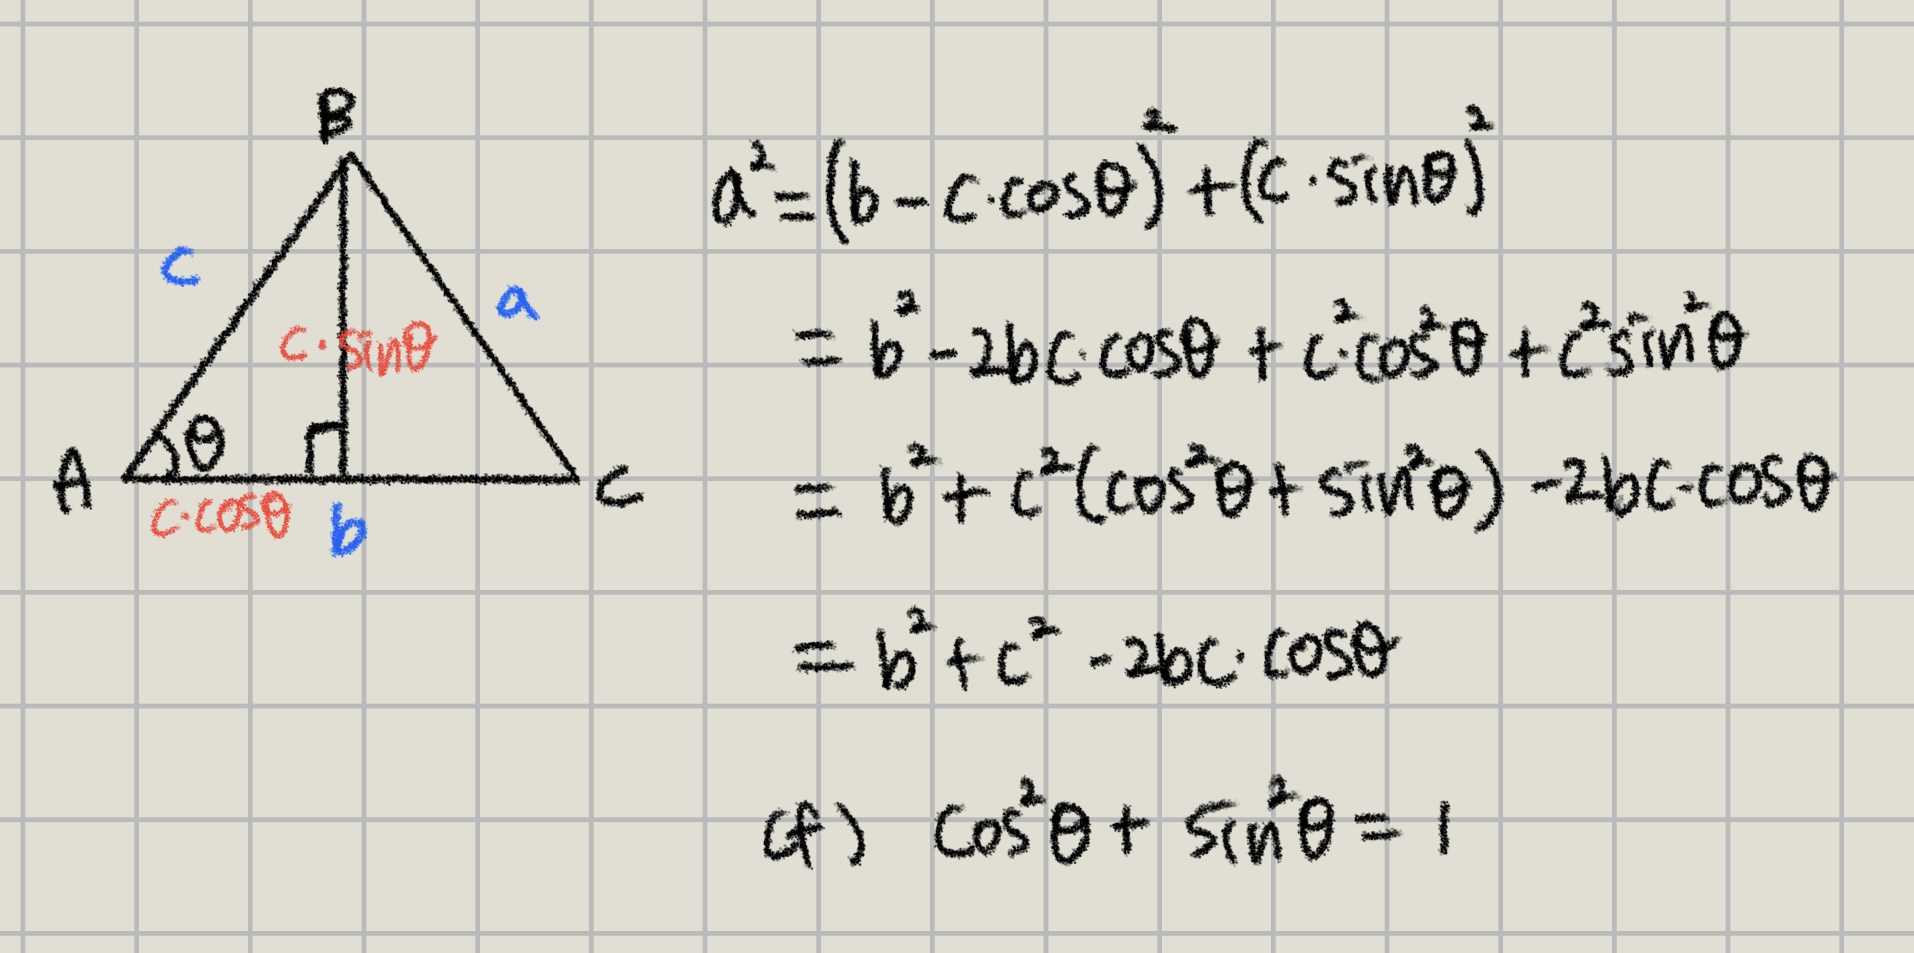 B
c
a
c·sinθ
θ
A
C
c·cosθ
b
a²=(b-c·cosθ)²+(c·sinθ)²
=b²-2bc·cosθ+c²·cos²θ+c²sin²θ
=b²+c²(cos²θ+sin²θ)-2bc·cosθ
=b²+c²-2bc·cosθ
cf) cos²θ+sin²θ=1